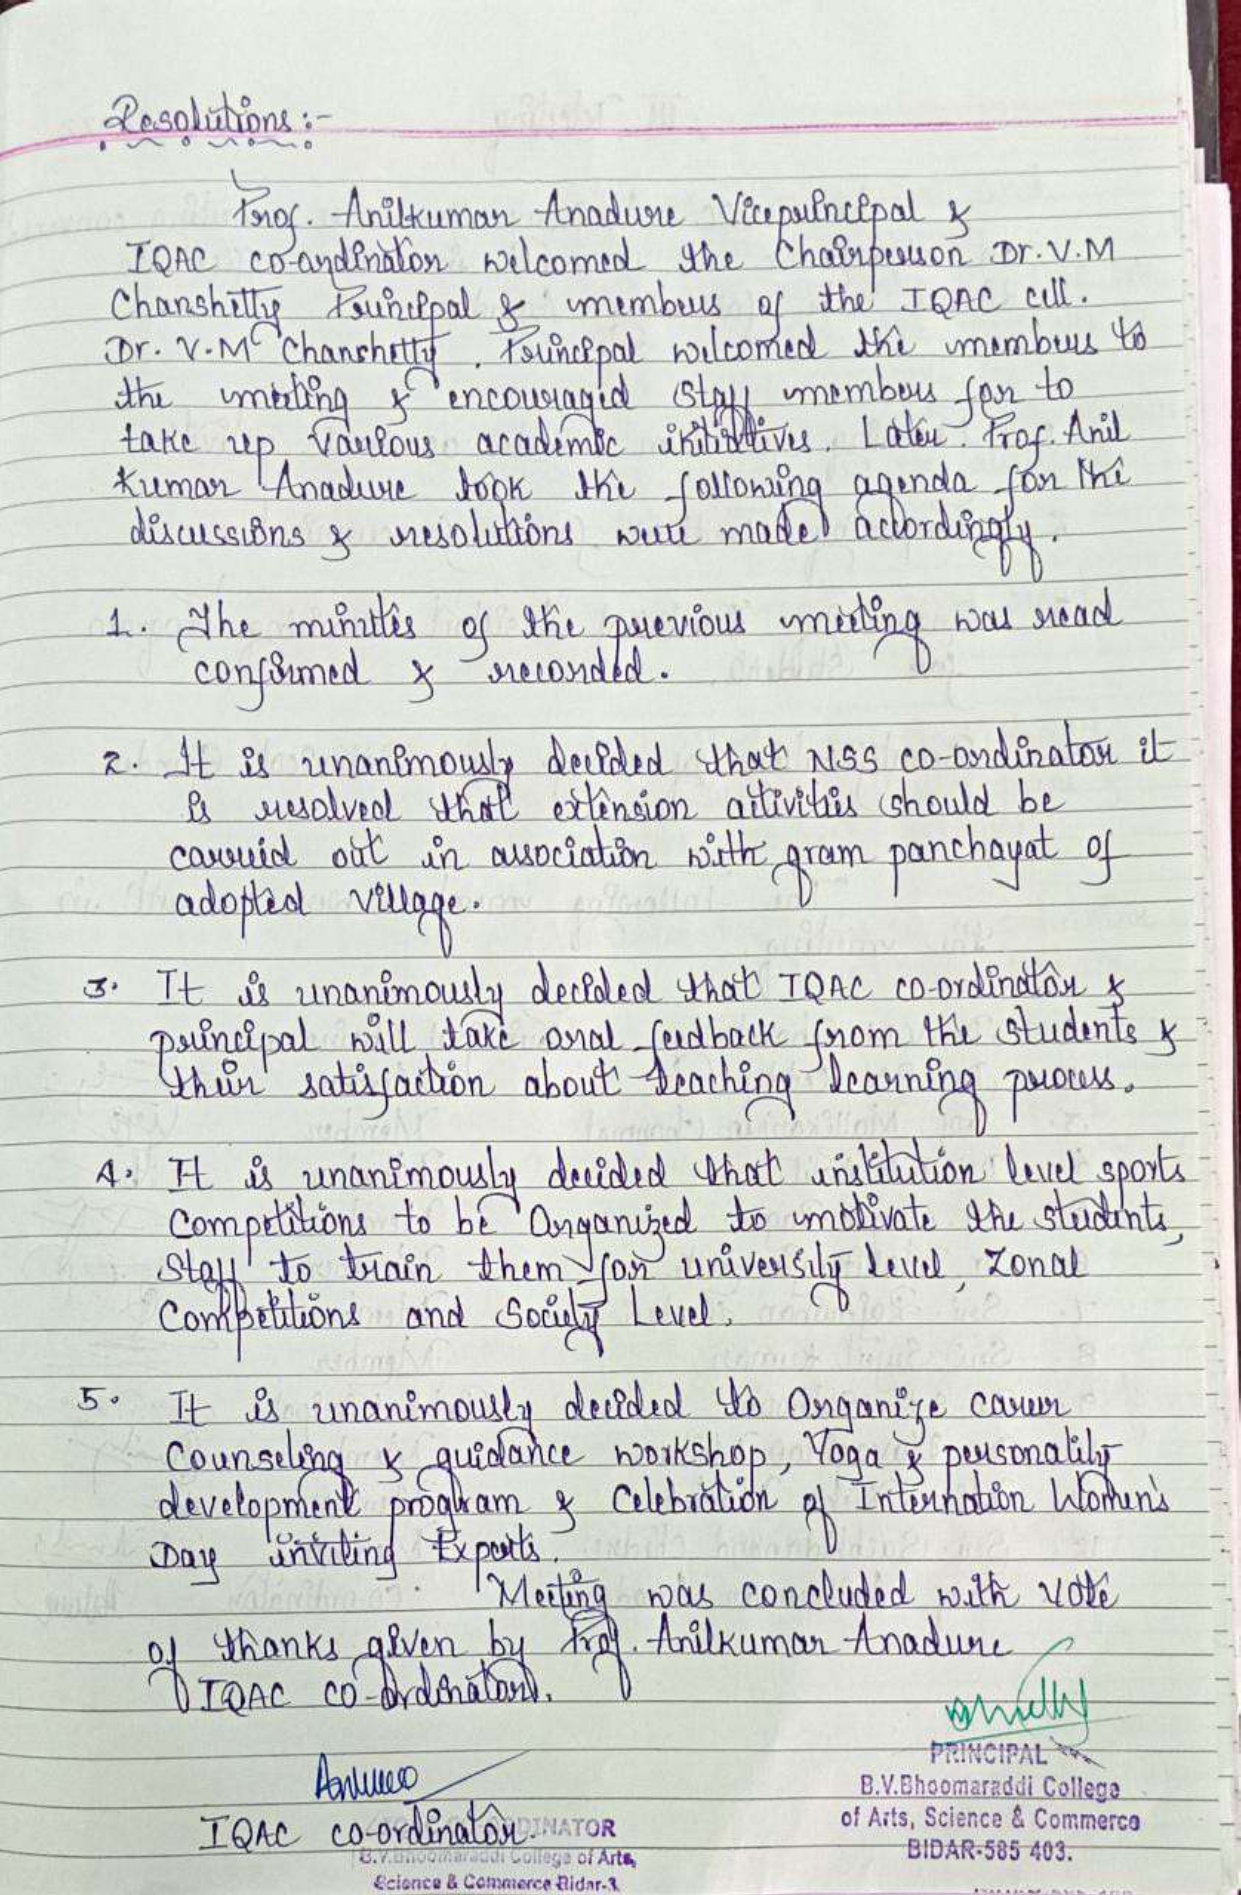 Resolutions :-
Prof. Anilkumar Anadure Viceprincipal &
IQAC co-ordinator welcomed the Chairperson Dr. V.M
Chanshetty Principal & members of the IQAC cell.
Dr. V.M Chanshetty, Principal welcomed the members to
the meeting & encouraged staff members for to
take up various academic initiatives. Later Prof. Anil
Kumar Anadure took the following agenda for the
discussions & resolutions were made accordingly.
1. The minutes of the previous meeting was read
confirmed & recorded.
2. It is unanimously decided that NSS co-ordinator it
is resolved that extension activities should be
carried out in association with gram panchayat of
adopted village.
3. It is unanimously decided that IQAC co-ordinator &
principal will take oral feedback from the students &
their satisfaction about teaching learning process.
4. It is unanimously decided that institution level sports
Competitions to be Organized to motivate the students,
Staff to train them for university level, Zonal
Competitions and Society Level.
5. It is unanimously decided to Organize career
Counseling & guidance workshop, Yoga & personality
development program & Celebration of Internation Women's
Day inviting Experts.
Meeting was concluded with vote
of thanks given by Prof. Anilkumar Anadure
IQAC co-ordinator.
PRINCIPAL
B.V.Bhoomaraddi College
of Arts, Science & Commerce
BIDAR-585 403.
IQAC co-ordinator
B.V.Bhoomaraddi College of Arts,
Science & Commerce Bidar-3